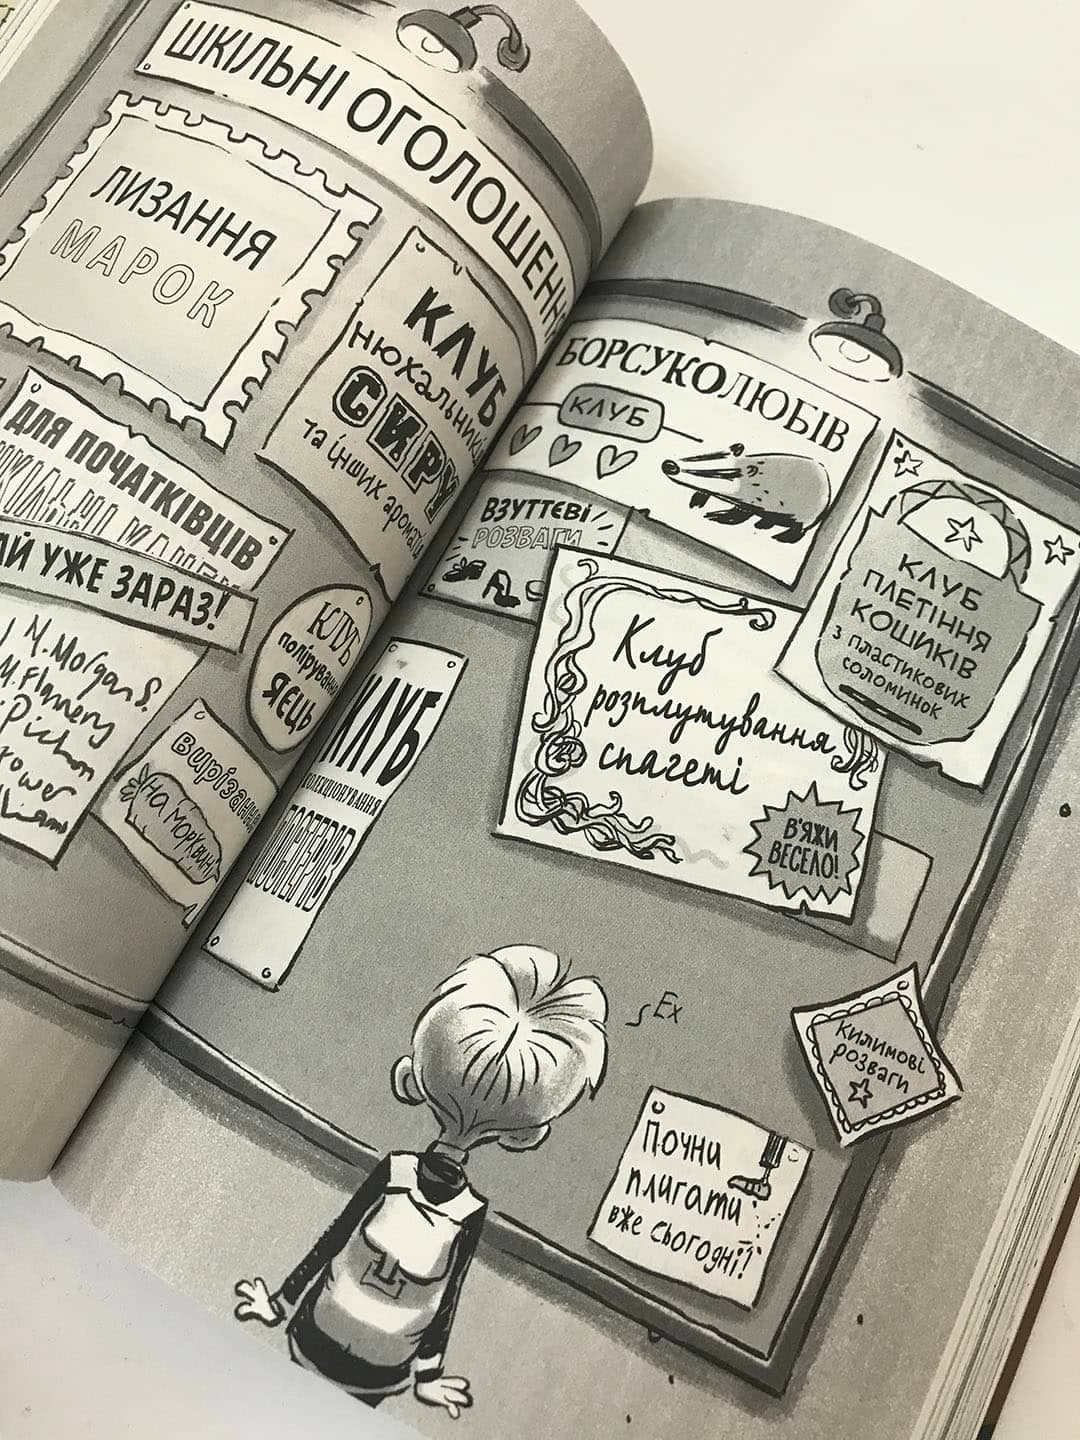 ШКІЛЬНІ ОГОЛОШЕНН
ЛИЗАННЯ
МАРОК
КЛУБ
НЮХАЛЬНИКІ
СИРУ
та інших ароматів
ДЛЯ ПОЧАТКІВЦІВ
АЙ УЖЕ ЗАРАЗ!
M. Morgan S.
M. Flannery
Pichon
rower
КЛУБ
полірування
ЯЄЦЬ
вирізання
на моркви
БОРСУКОЛЮБІВ
КЛУБ
ВЗУТТЄВІ
РОЗВАГИ
КЛУБ
ПЛЕТІННЯ
КОШИКІВ
з пластикових
соломинок
Клуб
розплутування
спагеті
В'ЯЖИ
ВЕСЕЛО!
КЛУБ
КОЛЕКЦІОНУВАННЯ
ПОСТЕРІВ
Ех
килимові
розваги
Почни
плигати
вже сьогодні!